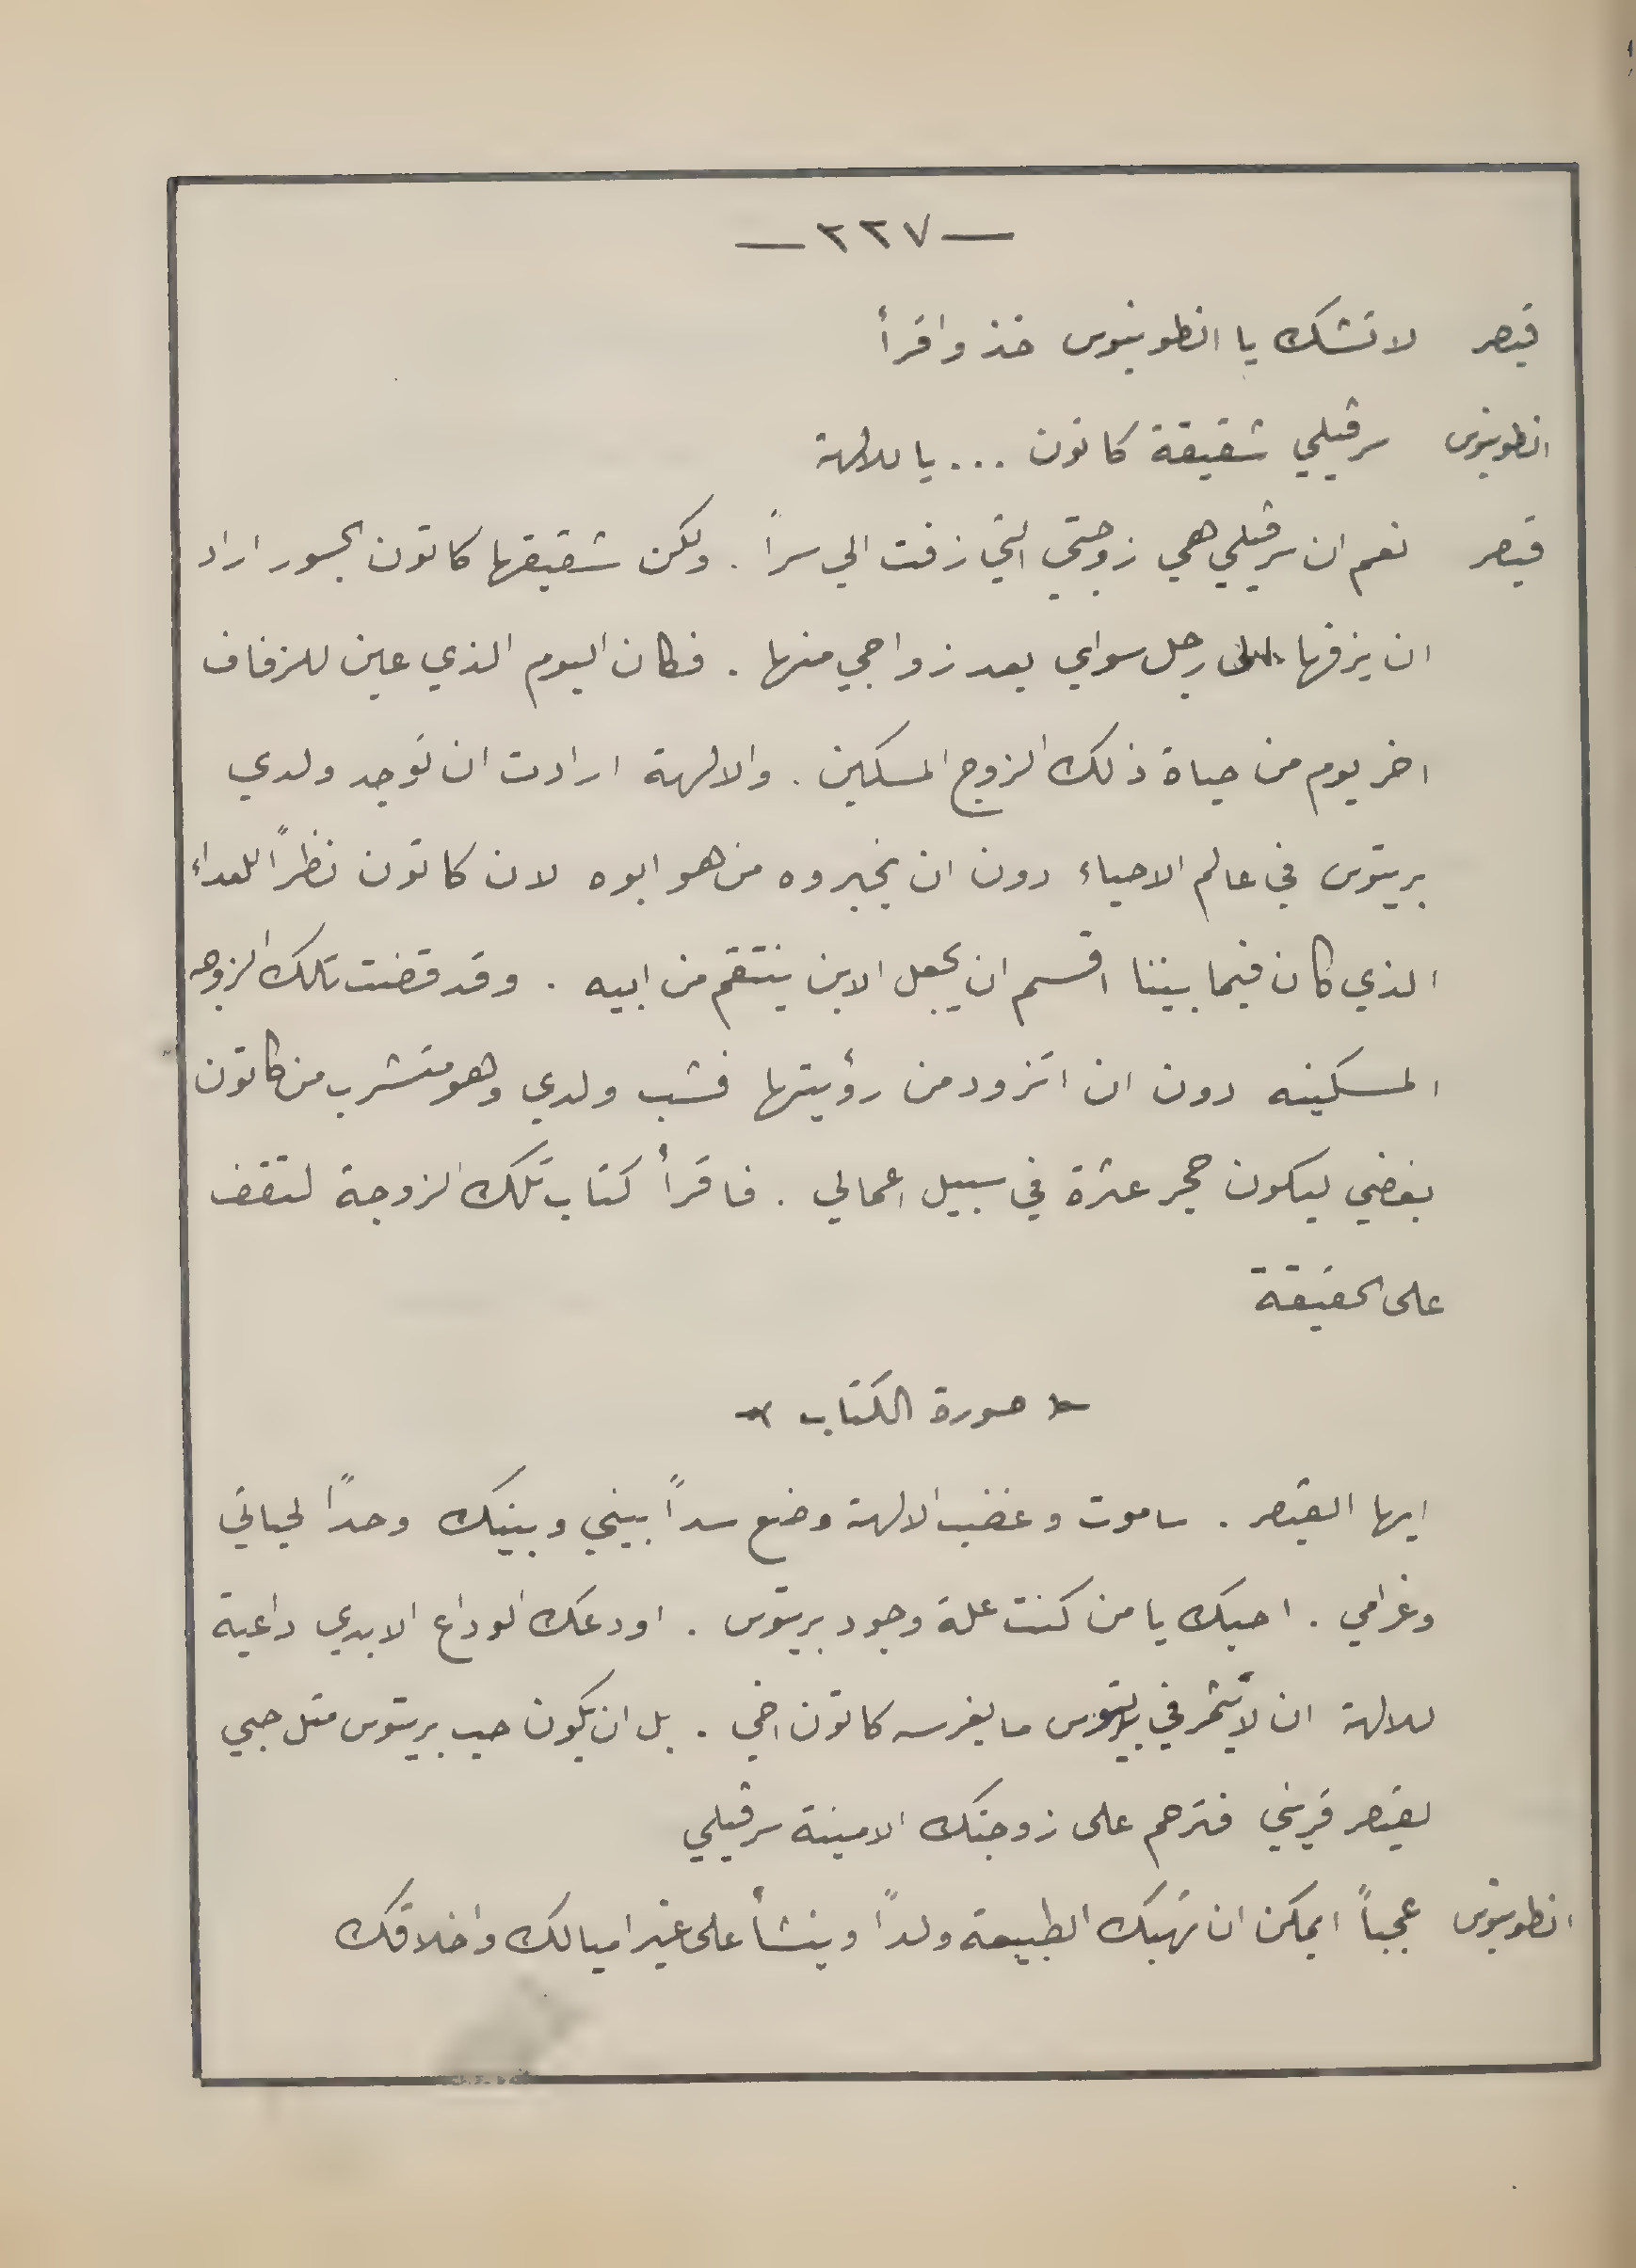 — ٢٢٧ —
قيصر لا تشك يا انطونيوس خذ واقرأ
انطونيوس سرڤيلي شقيقة كاتون ... يا للالهة
قيصر نعم ان سرڤيلي هي زوجتي التي زفت الي سراً . ولكن شقيقها كاتون الجسور اراد
ان يزفها الى رجل سواي بعد زواجي منها . فكان اليوم الذي عين للزفاف
اخر يوم من حياة ذلك الزوج المسكين . والالهة ارادت ان توجد ولدي
بريتوس في عالم الاحياء دون ان يخبروه من هو ابوه لان كاتون نظراً للعداء
الذي كان فيما بيننا اقسم ان يجعل الابن ينتقم من ابيه . وقد قضت تلك الزوجه
المسكينه دون ان اتزود من رؤيتها فشب ولدي وهو متشرب من كاتون
بغضي ليكون حجر عثرة في سبيل اعمالي . فاقرأ كتاب تلك الزوجة لتقف
على الحقيقة
صورة الكتاب
ايها القيصر . ساموت وغضب الالهة وضع سداً بيني وبينك وحداً لحياتي
وغرامي . احبك يا من كنت علة وجود بريتوس . اودعك الوداع الابدي داعية
للالهة ان لا يثمر في بريتوس ما يغرسه كاتون اخي . بل ان يكون حب بريتوس مثل حبي
لقيصر قريني فترحم على زوجتك الامينة سرڤيلي
انطونيوس عجباً ايمكن ان تهبك الطبيعة ولداً وينشأ على غير اميالك واخلاقك